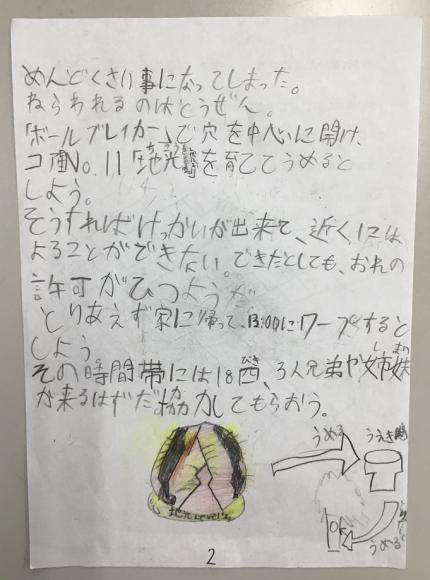 めんどくさい事になってしまった。
ねらわれるのはとうぜん。
「ボールブレイカー」で穴を中心に開け、
No.11「地光
を育ててうめると
しよう。
そうすればけっかいが出来て、近くには
よることができない。できたとしても、おれの
許可がひつようだ
とりあえず家に帰って、13:00にワープすると
しよう
その時間帯には18酉、3人兄弟や姉妹
が来るはずだ協力してもらおう。
うめる
うえき鉢
うめる
2